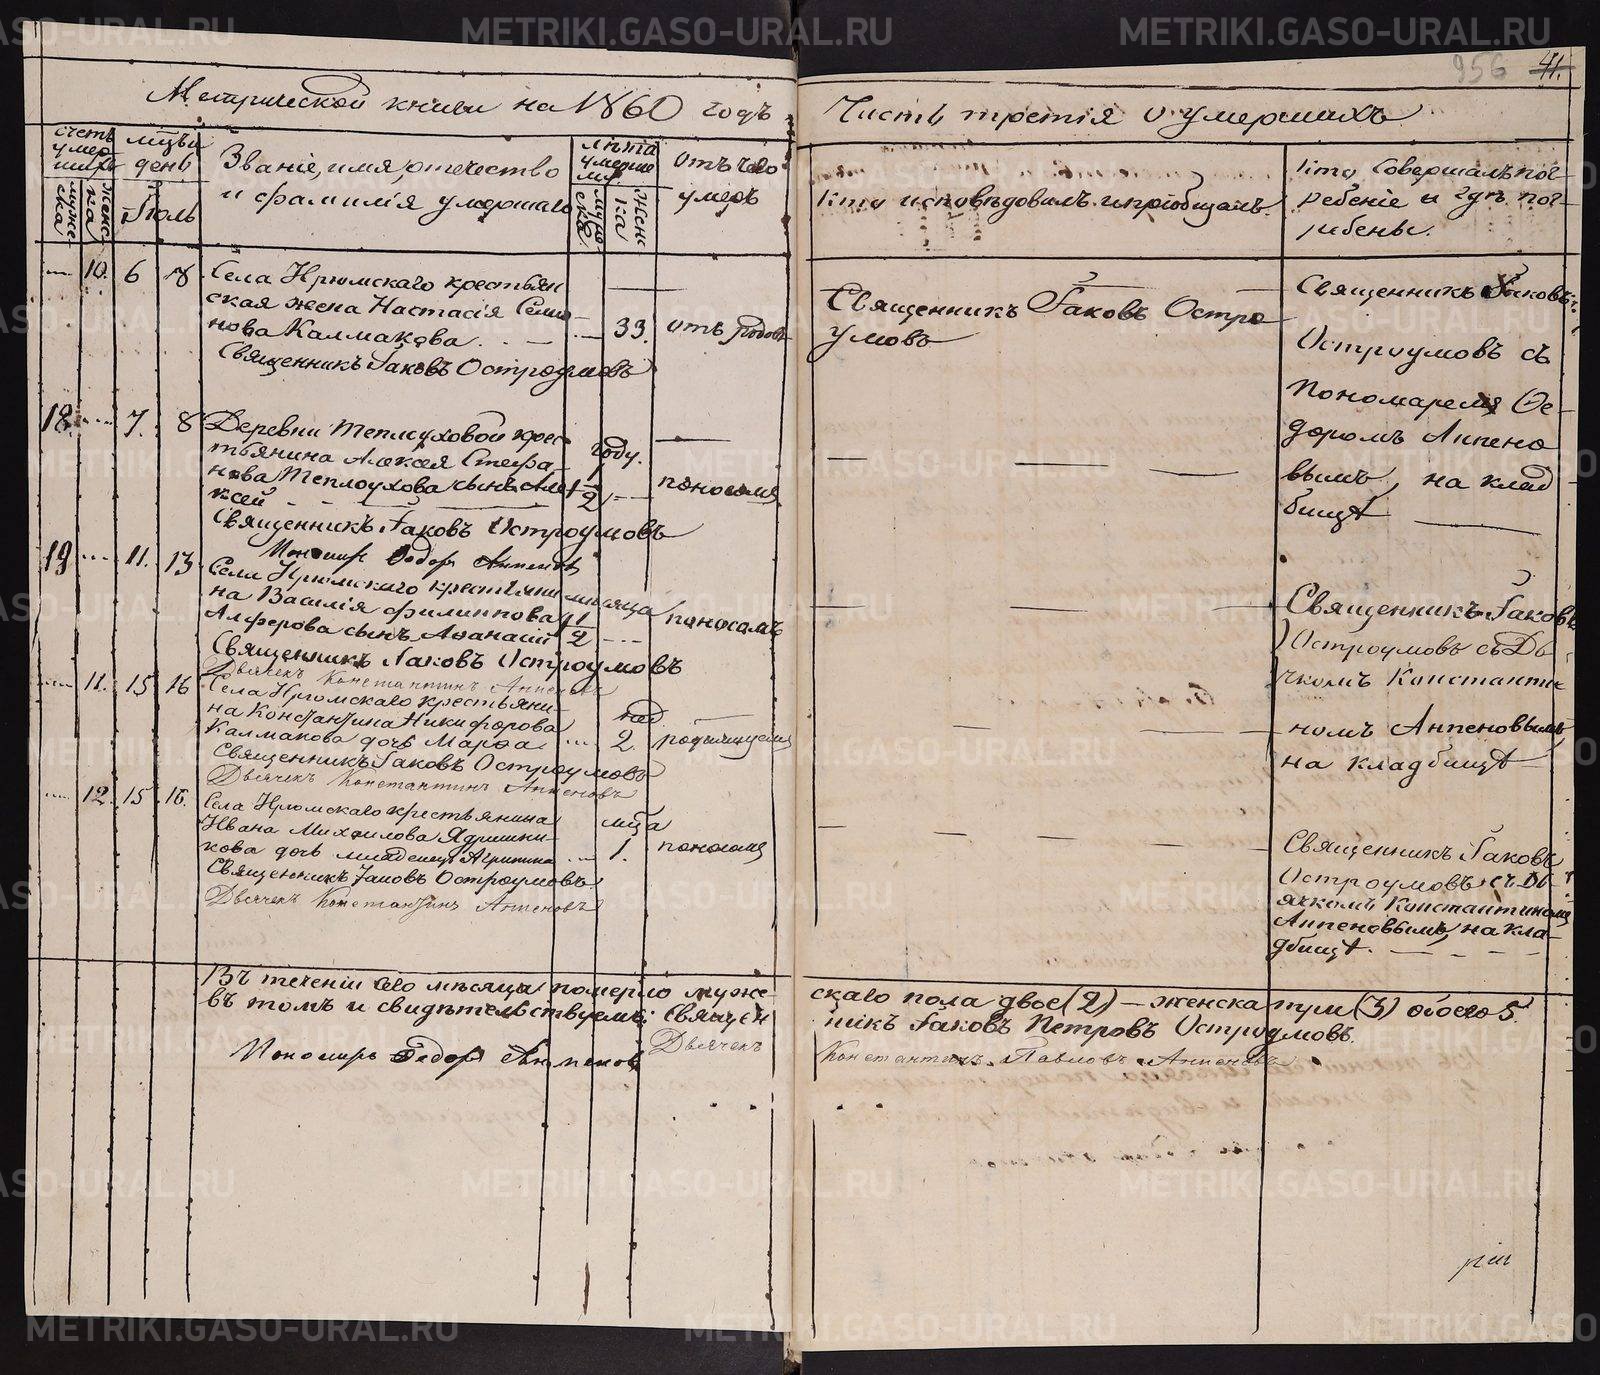 Метрической книги на 1860 годъ
Часть третія о умершихъ
956 41.
счетъ умер-шихъ
муже-ска
женс-ка
мѣсяцъ и день
Іюль
Званіе, имя, отчество
и фамилія умершаго
лѣта умерше
мужс ска
Женс ка
отъ чего
умеръ
Кто исповѣдовалъ и пріобщалъ.
Кто совершалъ пог-
ребеніе и гдѣ пог-
ребены.
10. 6 8 Села Ирюмскаго крестьян
ская жена Настасія Семио-
нова Калмакова 33. отъ родовъ
Священникъ Іаковъ Остроумовъ
Священникъ Іаковъ Остро
умовъ
Священникъ Іаковъ
Остроумовъ съ
Пономаремъ Ѳе-
доромъ Аппено
вымъ, на клад
бищѣ
18. 7. 8 Деревни Теплоуховой крес-
тьянина Алексѣя Стефа- году.
нова Теплоухова сынъ Але- 1/2 поносомъ
ксѣй
Священникъ Іаковъ Остроумовъ
Пономарь Ѳедоръ Аппеновъ
19 11. 13 Села Ирюмскаго крестьяни
на Василія Филиппова мѣсяца
Алферова сынъ Аѳанасій 1/2 поносомъ
Священникъ Іаковъ Остроумовъ
Дьячекъ Константинъ Аппеновъ
Священникъ Іаковъ
Остроумовъ съ Дь
ячкомъ Константи
номъ Аппеновымъ,
на кладбищѣ
11. 15 16 Села Ирюмскаго крестьяни-
на Константина Никифорова нед
Калмакова дочь Марѳа 2. родимицемъ
Священникъ Іаковъ Остроумовъ
Дьячекъ Константинъ Аппеновъ
12. 15 16. Села Ирюмскаго крестьянина
Ивана Михаилова Ядришни- мца
кова дочь младенецъ Агрипина 1. поносомъ
Священникъ Іаковъ Остроумовъ
Дьячекъ Константинъ Аппеновъ
Священникъ Іаковъ
Остроумовъ съ Дь
ячкомъ Константиномъ
Аппеновымъ, на кла-
дбищѣ.
Въ теченіи сего мѣсяца померло муже-
скаго пола двое (2) — женска три (3) обоего 5.
въ томъ и свидѣтельствуемъ: Священ
никъ Іаковъ Петровъ Остроумовъ.
Дьячекъ
Константинъ Павловъ Аппеновъ
Пономарь Ѳедоръ Аппеновъ
METRIKI.GASO-URAL.RU